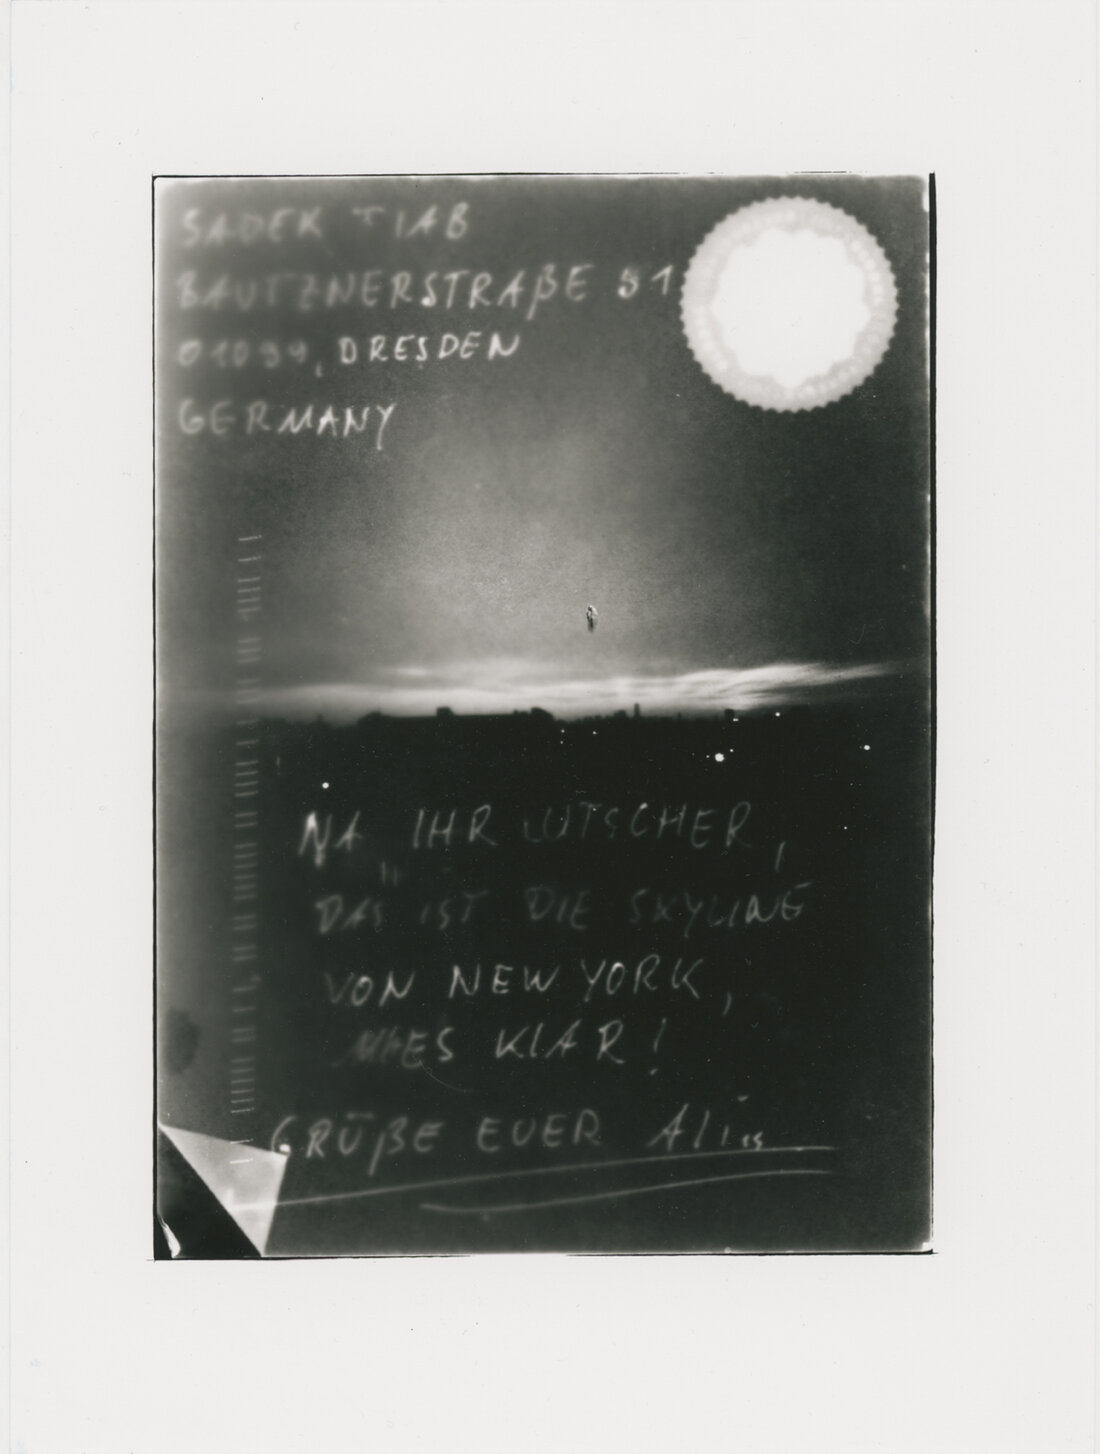 SADEK TIAB
BAUTZNERSTRAßE 51
01099, DRESDEN
GERMANY
NA, IHR LUTSCHER,
DAS IST DIE SKYLINE
VON NEW YORK,
ALLES KLAR!
GRÜßE EUER